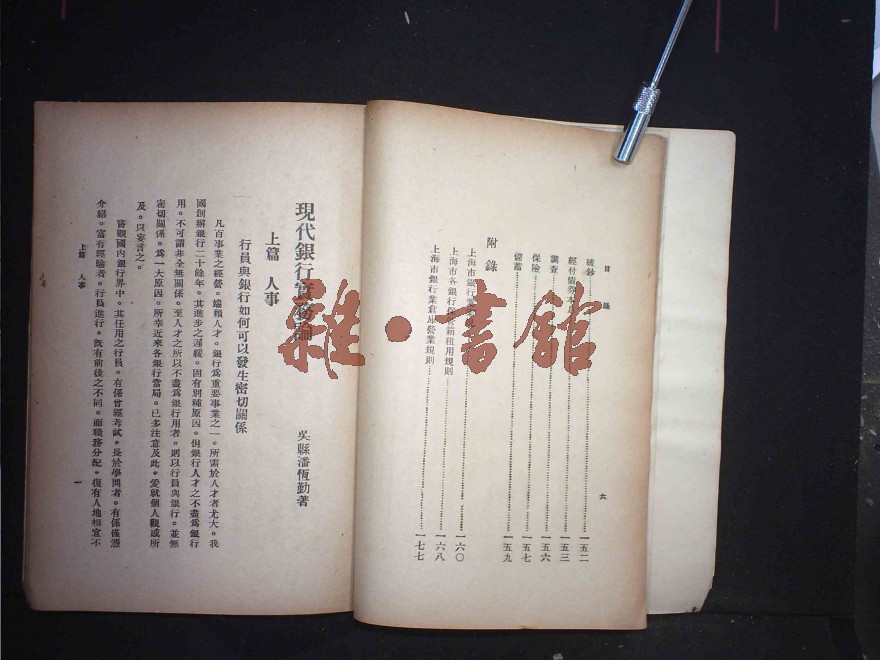 目錄
破鈔……一五二
經付債券本息……一五三
調查……一五六
保險……一五七
儲蓄……一五九
附錄
上海市銀行業……一六〇
上海市各銀行保管箱租用規則……一六八
上海市銀行業倉庫營業規則……一七七
六
現代銀行實務論
吳縣潘恆勤著
上篇 人事
行員與銀行如何可以發生密切關係
凡百事業之經營。端賴人才。銀行爲重要事業之一。所需於人才者尤大。我
國創辦銀行二十餘年。其進步之遲緩。固有別種原因。但銀行人才之不盡爲銀行
用。不可謂非全無關係。至人才之所以不盡爲銀行用者。則以行員與銀行。並無
密切關係。爲一大原因。所幸近來各銀行當局。已多注意及此。爰就個人觀感所
及。以妄言之。
嘗觀國內銀行界中。其任用之行員。有係曾經考試。長於學問者。有係僅憑
介紹。富有經驗者。行員進行。既有前後之不同。而職務分配。復有人地相宜不
上篇 人事
一
雜·書館